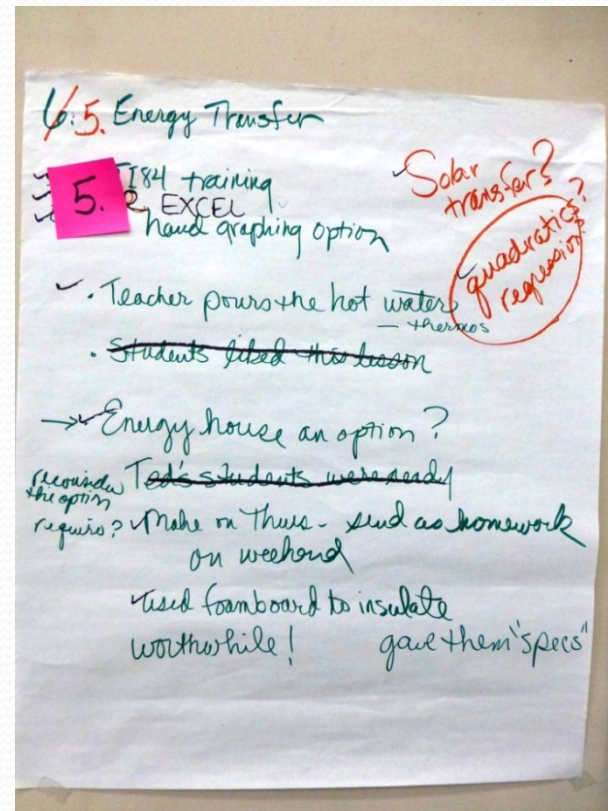 6. 5. Energy Transfer
5.
TI84 training
EXCEL
hand graphing option
Solar
transfer?
quadratics?
regression?
• Teacher pours the hot water
— thermos
• Students liked this lesson
→ Energy house an option?
Ted's students were ready
reconsider
the option
require?
Make on Thurs - send as homework
on weekend
used foamboard to insulate
worthwhile! gave them "specs"